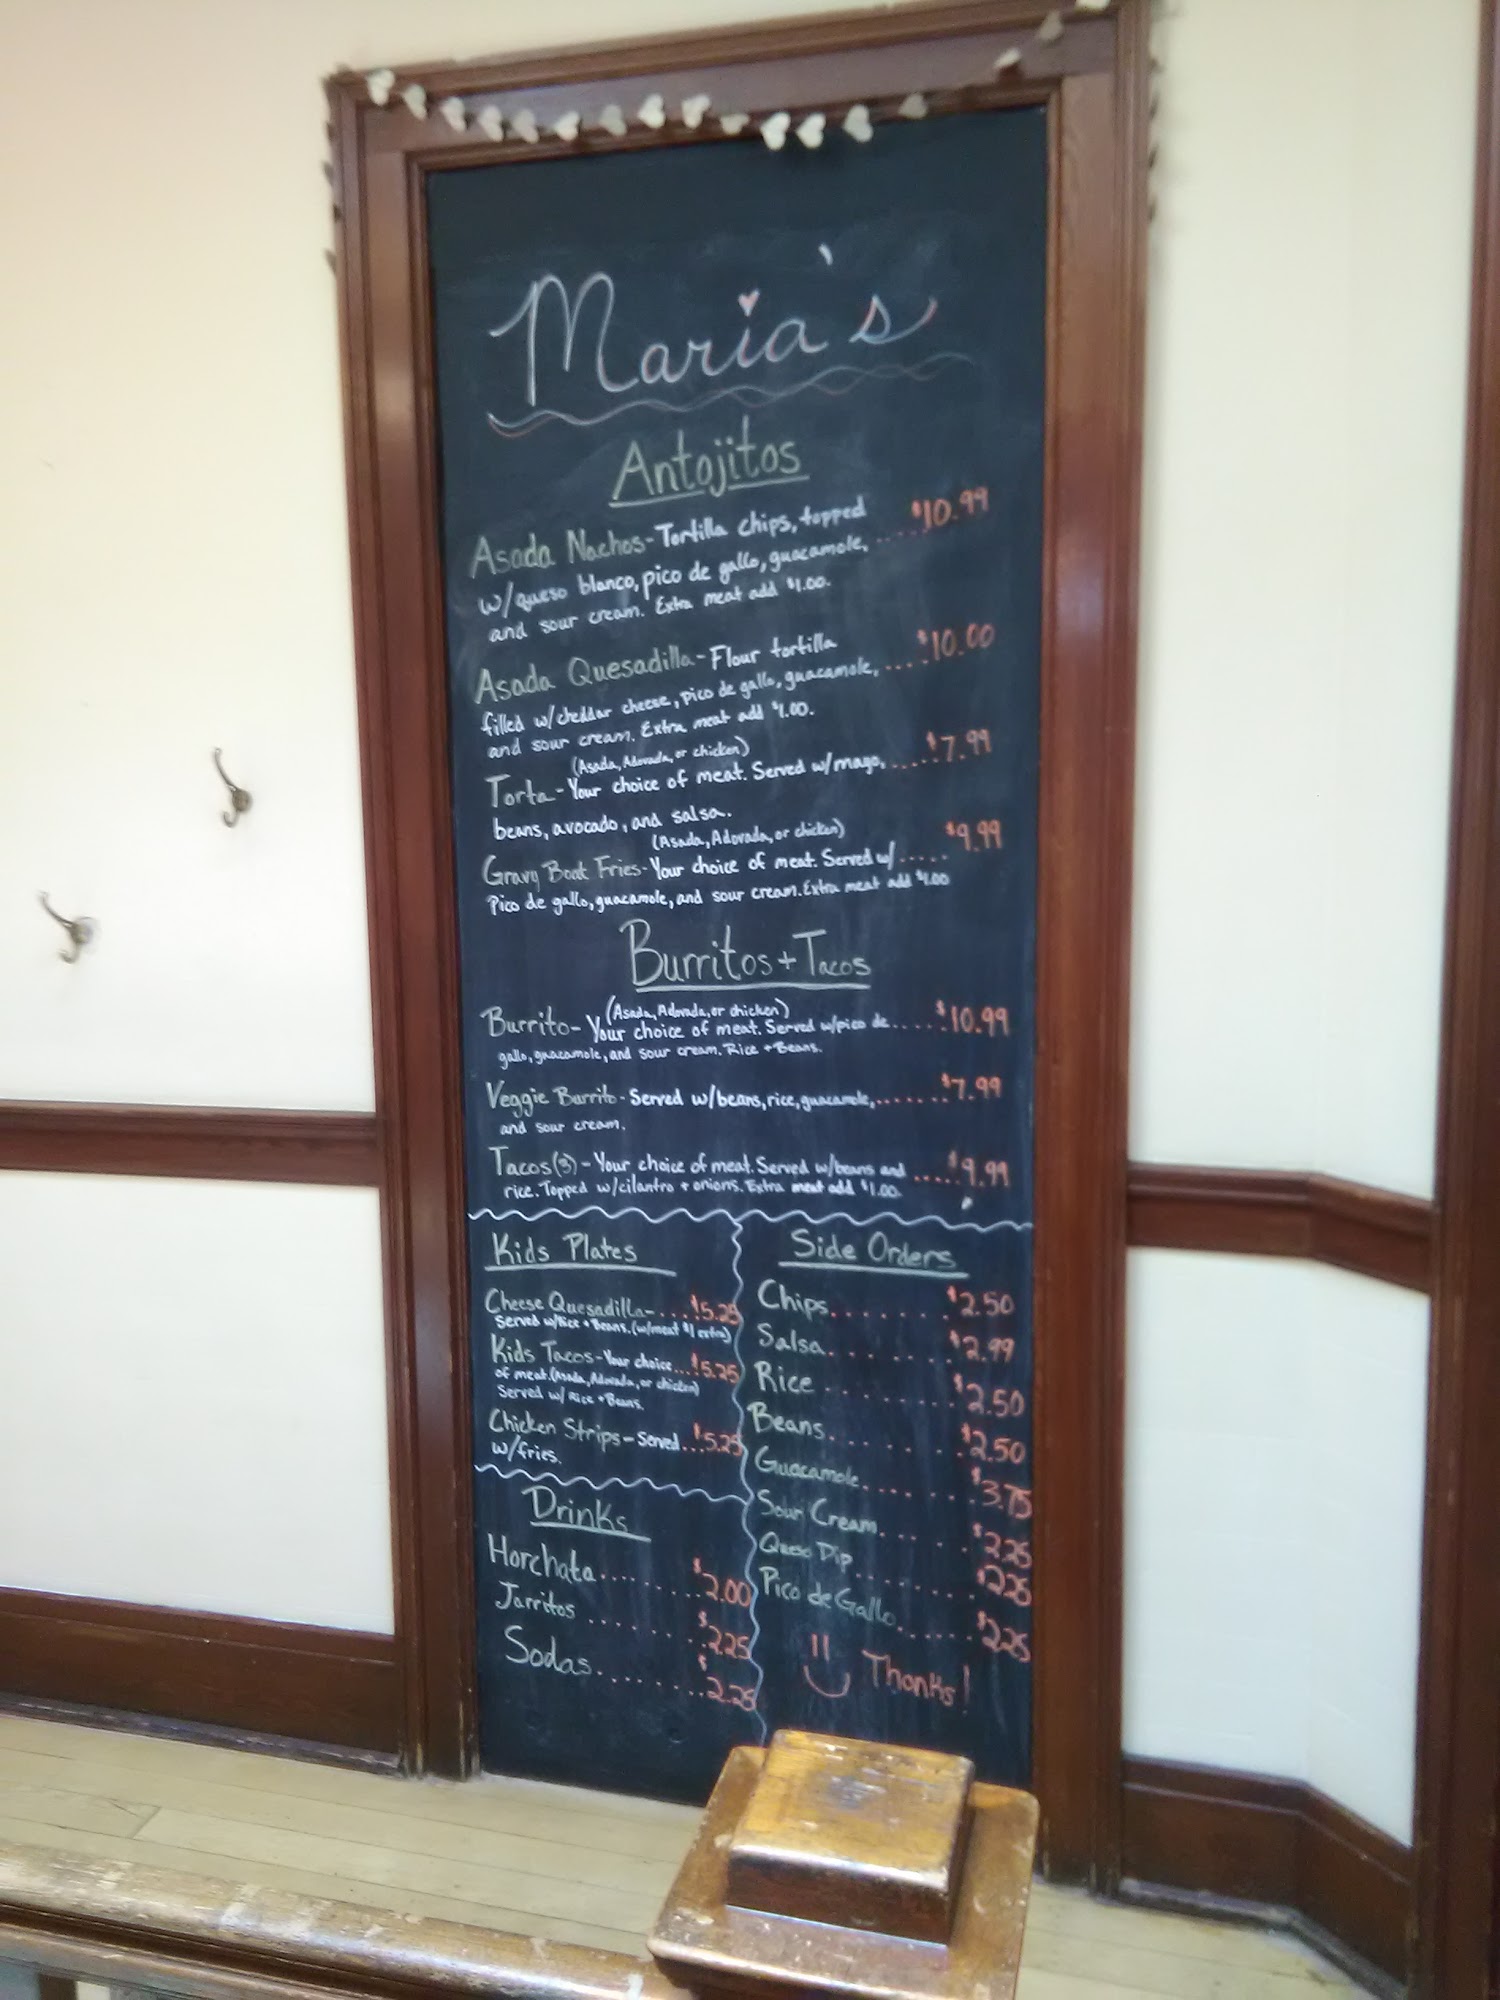 Maria's
Antojitos
Asada Nachos - Tortilla chips, topped ..... $10.99
w/queso blanco, pico de gallo, guacamole,
and sour cream. Extra meat add $1.00.
Asada Quesadilla - Flour tortilla ..... $10.00
filled w/cheddar cheese, pico de gallo, guacamole,
and sour cream. Extra meat add $1.00.
(Asada, Adovada, or chicken)
Torta - Your choice of meat. Served w/mayo, ..... $7.99
beans, avocado, and salsa.
(Asada, Adovada, or chicken)
Gravy Boat Fries - Your choice of meat. Served w/ ..... $9.99
Pico de gallo, guacamole, and sour cream. Extra meat add $1.00
Burritos + Tacos
(Asada, Adovada, or chicken)
Burrito - Your choice of meat. Served w/pico de ..... $10.99
gallo, guacamole, and sour cream. Rice + Beans.
Veggie Burrito - Served w/beans, rice, guacamole, ....... $7.99
and sour cream.
Tacos (3) - Your choice of meat. Served w/beans and ..... $9.99
rice. Topped w/cilantro + onions. Extra meat add $1.00.
Kids Plates
Cheese Quesadilla - .... $5.25
Served w/Rice + Beans. (w/meat $1 extra)
Kids Tacos - Your choice ... $5.25
of meat. (Asada, Adovada, or chicken)
Served w/ Rice + Beans.
Chicken Strips - Served ... $5.25
w/fries.
Drinks
Horchata ........ $2.00
Jarritos ........ $2.25
Sodas ........ $2.25
Side Orders
Chips ........ $2.50
Salsa ........ $2.99
Rice ........ $2.50
Beans ........ $2.50
Guacamole ........ $3.75
Sour Cream ...... $2.25
Queso Dip ........ $2.25
Pico de Gallo ...... $2.25
Thanks!